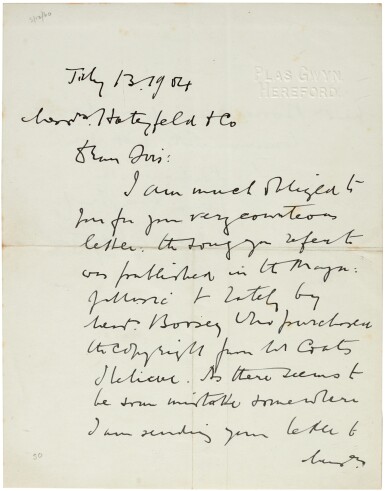 PLAS GWYN
HEREFORD.
July 13. 1904
Messrs. Hatzfeld & Co
Dear Sirs:
I am much obliged to
you for your very courteous
letter. The song you refer to
was published in the Mag:
of Music & lately by
Messrs. Boosey who purchased
the copyright from Mr Coats
I believe. As there seems to
be some mistake somewhere
I am sending your letter to
Messrs